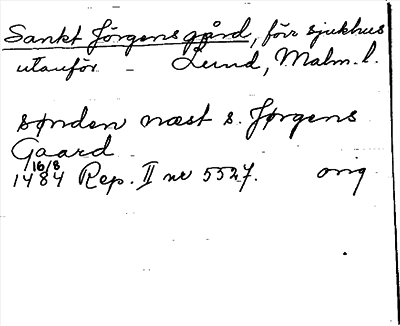 Sankt Jörgens gård, förr sjukhus
utanför - Lund, Malm. l.
sønden næst s. Jørgens
Gaard
16/8
1484 Rep. II nr 5527. orig